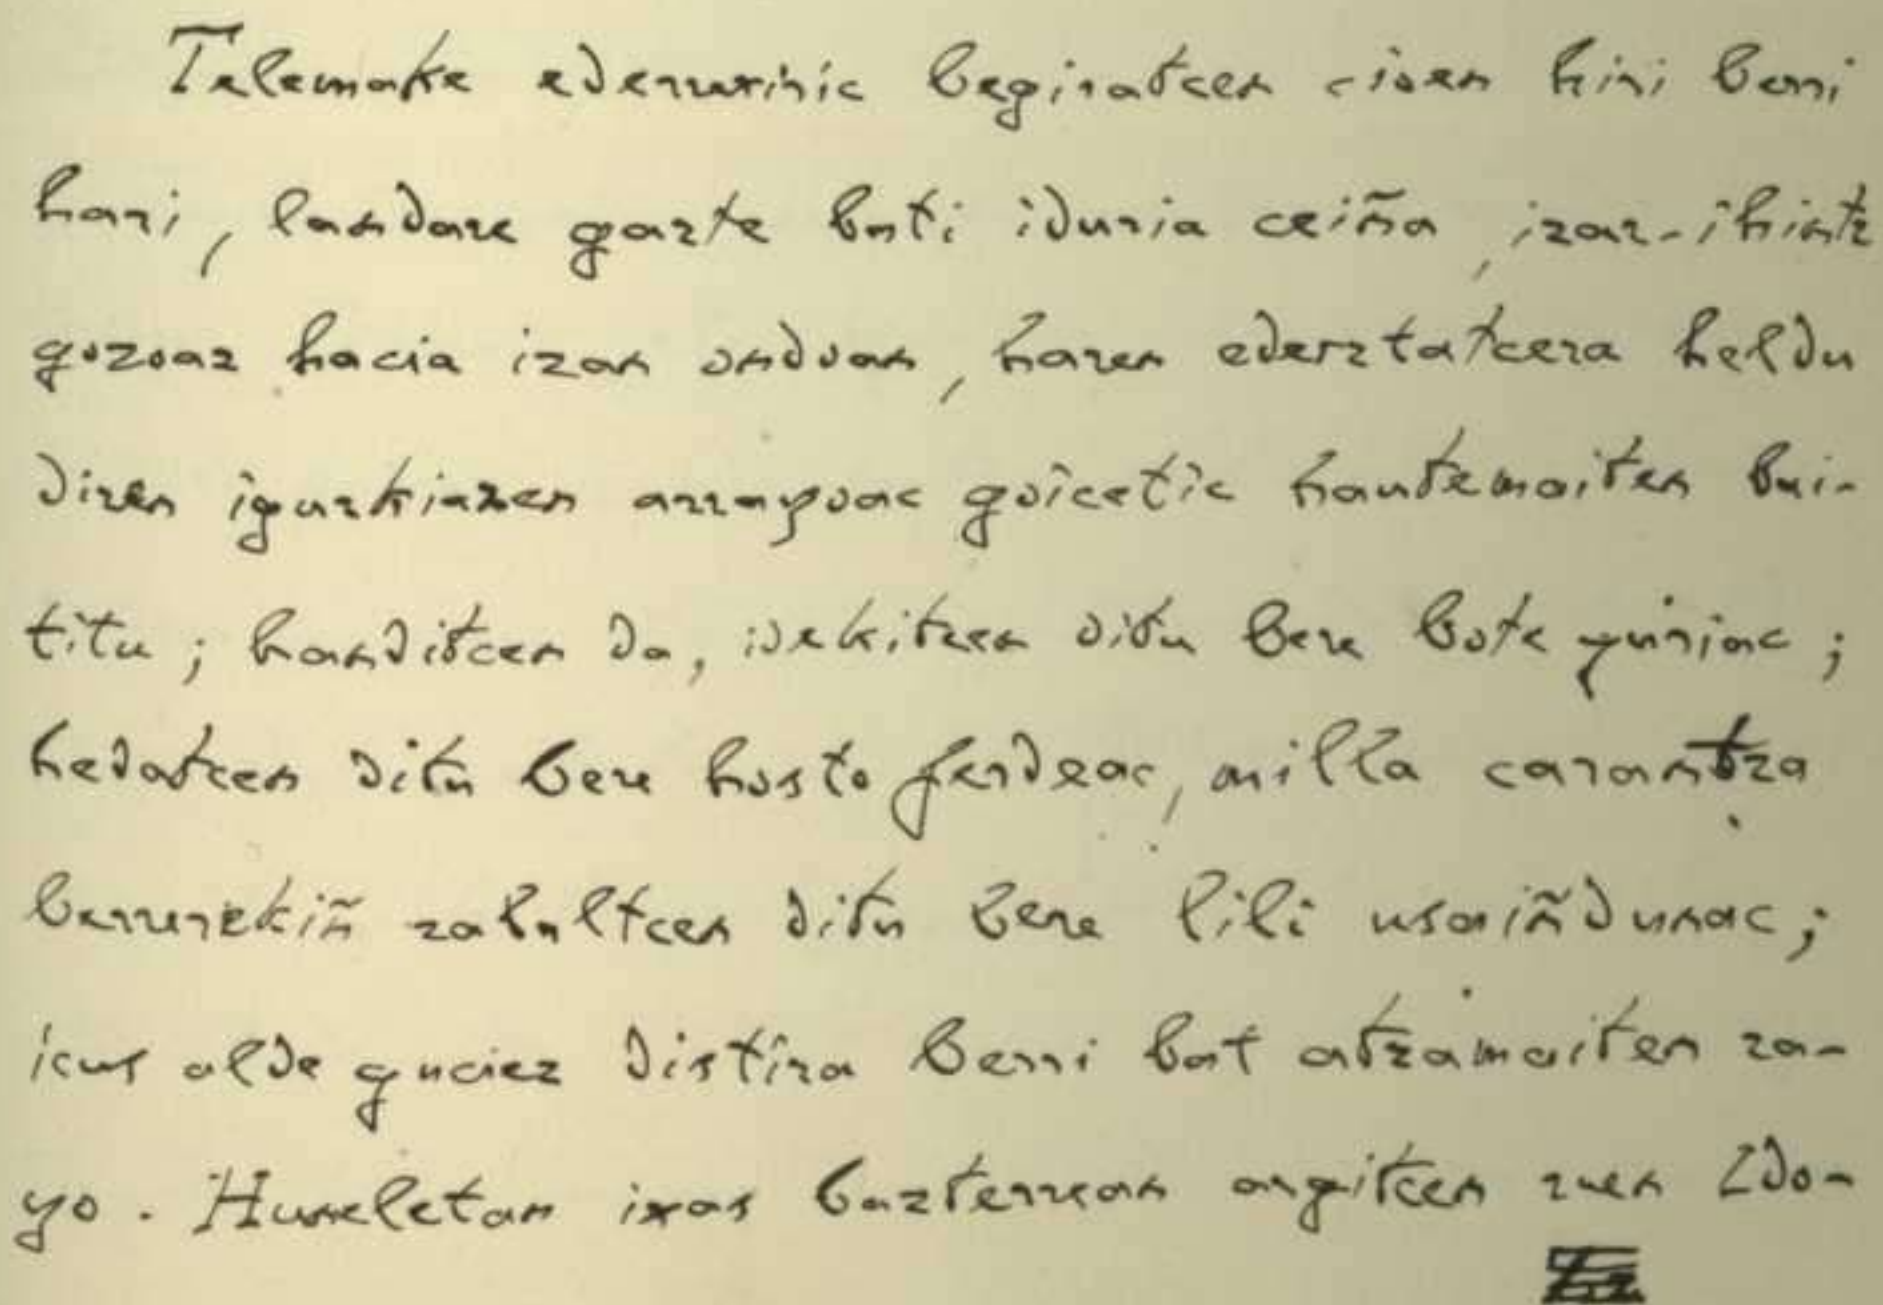 Telemake ederrurihic begiratcen cioen hiri berri
harri, landare gazte bati iduria ceiña, izar-ihintz
gozoaz hacia izan onduan, haren ederztatcera heldu
diren iguzkiaren arrayoac goicetic hautemaiten bai-
titu; handitcen da, idekitcen ditu bere bote guriac;
hedatcen ditu bere hosto ferdeac, milla carantza
berrirekiñ zabaltcen ditu bere lili usaiñdunac;
icus alde guciez distira berri bat atzamaiten za-
yo. Huneletan ixas bazterrean argitcen zuen Ido-